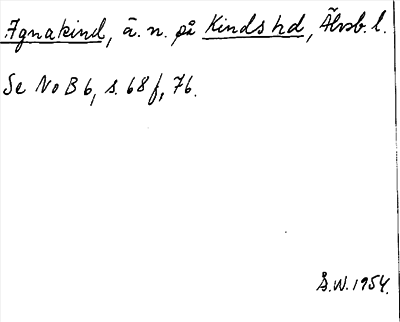 Ignakind, ä. n. på Kinds hd, Älvsb. l.
Se NoB 6, s. 68 f, 76.
S.W. 1954.